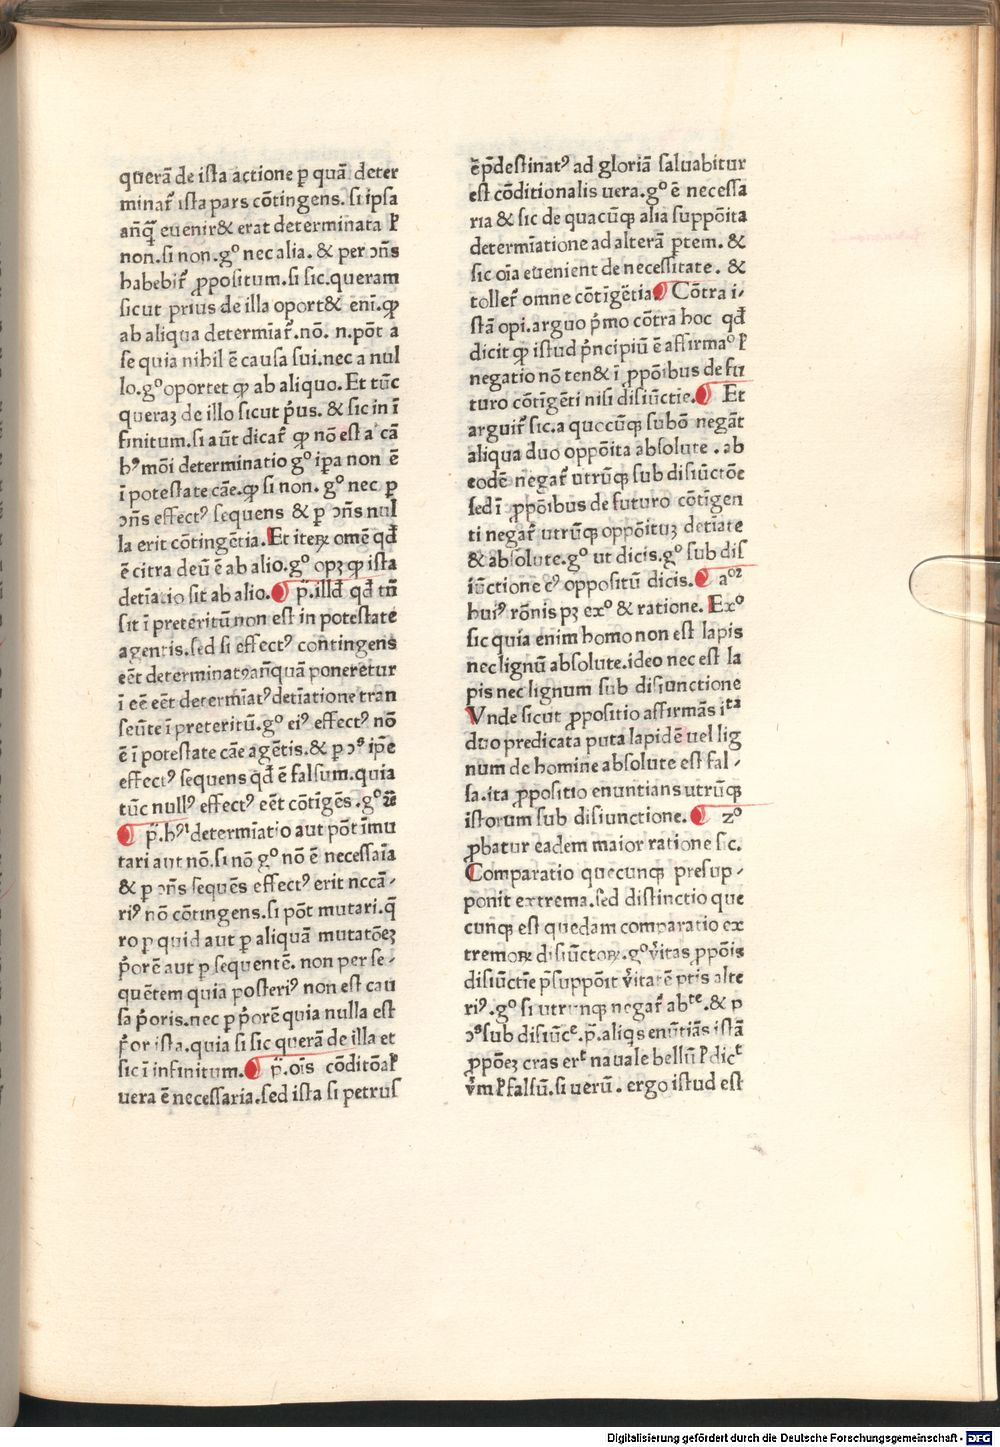 querā de ista actione ꝑ quā deter
minat᷑ ista pars cōtingens. si ipsa
añꝗ̄ euenir& erat determinata ł
non. si non. gº nec alia. & per ↄñs
habebit᷑ ꝓpositum. si sic. queram
sicut prius de illa oport& eni. ꝙ
ab aliqua determīat᷑. nō. n. pōt a
se quia nihil ē causa sui. nec a nul
lo. gº oportet ꝙ ab aliquo. Et tūc
queraꝫ de illo sicut p̄us. & sic in ī
finitum. si aūt dicat᷑ ꝙ nō est a cā
hꝰ mōi determinatio gº ip̄a non ē
ī potestate cāe. ꝙ si non. gº nec ꝑ
ↄñs effectꝰ sequens & ꝑ ↄñs nul
la erit cōtingētia. Et iteꝝ omē qd̄
ē citra deū ē ab alio. gº opꝫ ꝙ ista
detīatio sit ab alio. ¶ p̄. illd̄ qd̄ tn̄
sit ī preteritū non est in potestate
agentis. sed si effectꝰ contingens
eēt determinatꝰ añquā poneretur
ī eē eēt determīatꝰ detīatione tran
seūte ī preteritū. gº eiꝰ effectꝰ nō
ē ī potestate cāe agētis. & ꝑ ↄs ip̄e
effectꝰ sequens qd̄ ē falsum. quia
tūc nullꝰ effectꝰ eēt cōtigēs. gº
¶ p̄. hꝰ determīatio aut pōt īmu
tari aut nō. si nō gº nō ē necessaīa
& ꝑ ↄñs sequēs effectꝰ erit nccā-
riꝰ nō cōtingens. si pōt mutari. q̄
ro ꝑ quid aut ꝑ aliquā mutatōeꝫ
p̄orē aut ꝑ sequentē. non per se-
quētem quia posteriꝰ non est cau
sa p̄oris. nec ꝑ p̄orē quia nulla est
p̄or ista. quia si sic querā de illa et
sic ī infinitum. ¶ p̄. oīs cōditōał
uera ē necessaria. sed ista si petrus
ē p̄destinatꝰ ad gloriā saluabitur
est cōditionalis uera. gº ē necessa
ria & sic de quacūꝗ alia suppōita
determīatione ad alterā ꝑtem. &
sic oīa euenient de necessitate. &
tollet᷑ omne cōtīgētia ¶ Cōtra i-
stā opi. arguo p̄mo cōtra hoc qd̄
dicit ꝙ istud p̄ncipiū ē affirmaº ł
negatio nō ten& ī ꝓpōibus de fu
turo cōtīgēti nisi disiūctie. ¶ Et
arguit᷑ sic. a quocūꝗ subō negāt
aliqua duo oppōita absolute. ab
eodē negat᷑ utrūꝗ sub disiūctōe
sed ī ꝓpōibus de futuro cōtīgen
ti negat᷑ utrūꝗ oppōituꝫ detīate
& absolute. gº ut dicis. gº sub dis
iūctione cꝰ oppositū dicis. ¶
huiꝰ rōnis pꝫ exº & ratione. Exº
sic quia enim homo non est lapis
nec lignū absolute. ideo nec est la
pis nec lignum sub disiunctione
Vnde sicut ꝓpositio affirmās ita
duo predicata puta lapidē uel lig
num de homine absolute est fal-
sa. ita ꝓpositio enuntians utrūꝗ
istorum sub disiunctione. ¶ 2º
ꝓbatur eadem maior ratione sic.
Comparatio quecunꝗ presup-
ponit extrema. sed distinctio que
cunꝗ est quedam comparatio ex
tremoꝝ disiūctoꝝ. gº v̄itas ꝓpōis
disiūctīe p̄suppōit v̄itatē ꝑtis alte
riꝰ. gº si utrunꝗ negat᷑ abte. & ꝑ
ↄs sub disiūce. p̄. aliqs enūtiās istā
ꝓpōeꝫ cras eřt nauale bellū ł dict
v̄m ł falsū. si uerū. ergo istud est
Digitalisierung gefördert durch die Deutsche Forschungsgemeinschaft - DFG